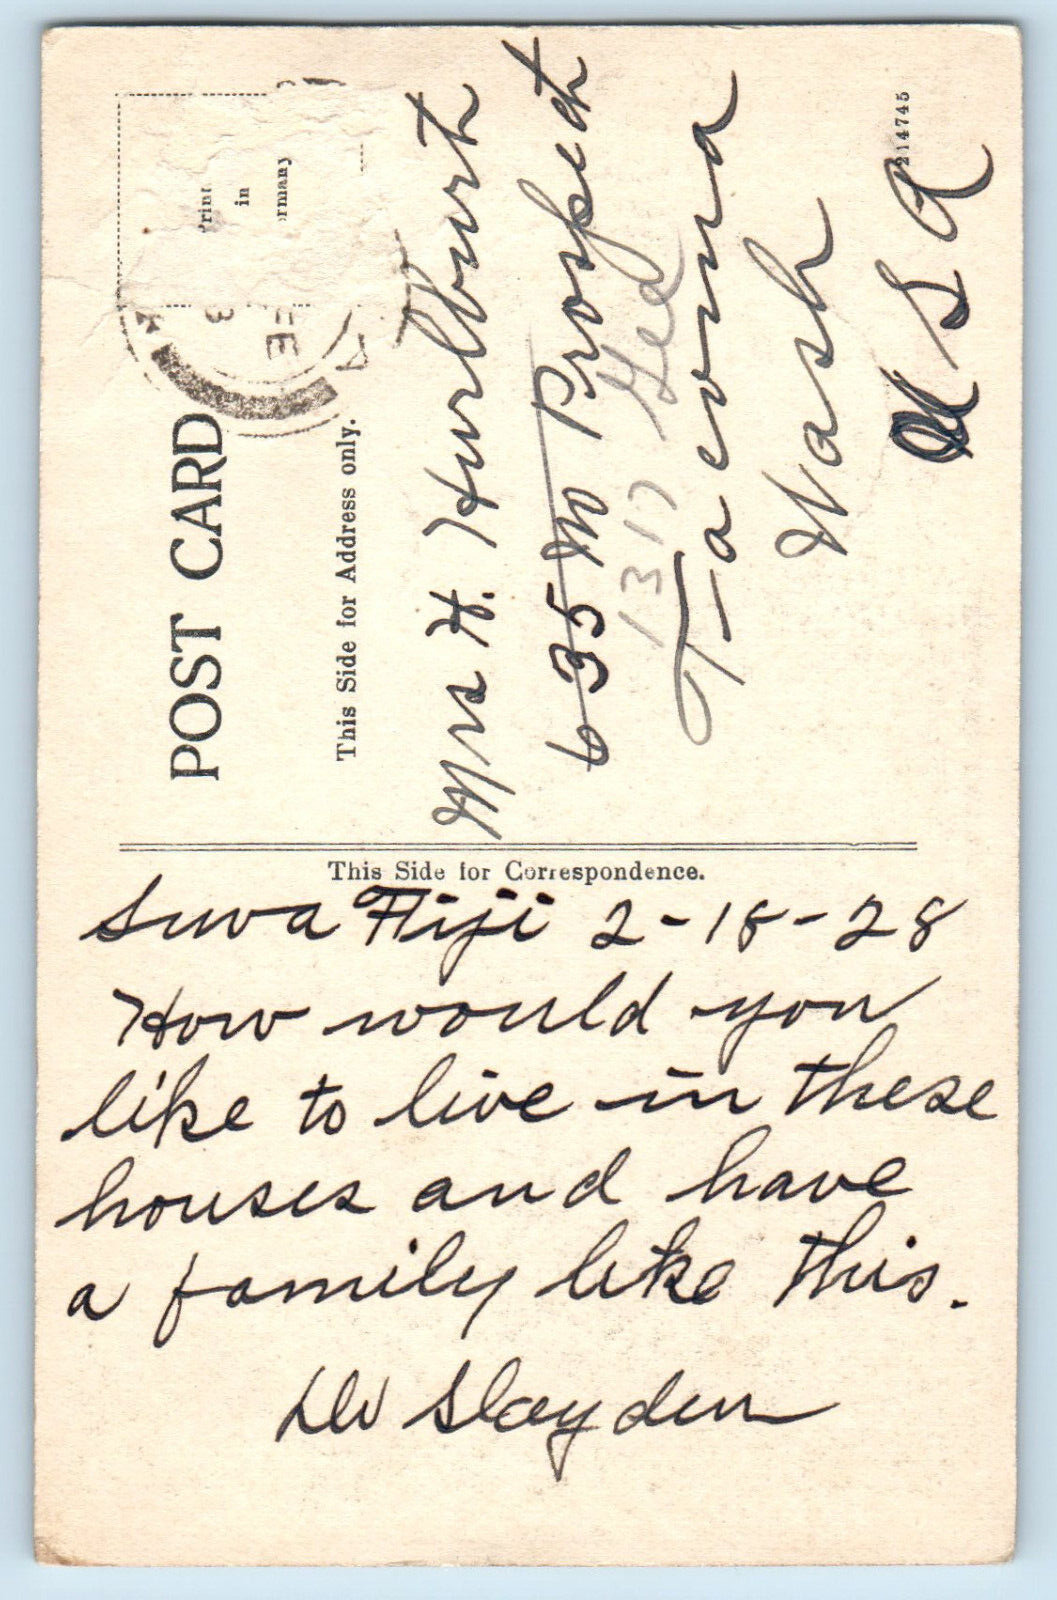 POST CARD
This Side for Address only.
Print
in
ermany
FE
Mrs H. Hurlburth
635 M Prospect
1317
Tacoma
Wash
U S A
214745
This Side for Correspondence.
Suva Fiji 2-18-28
How would you
like to live in these
houses and have
a family like this.
Slayden